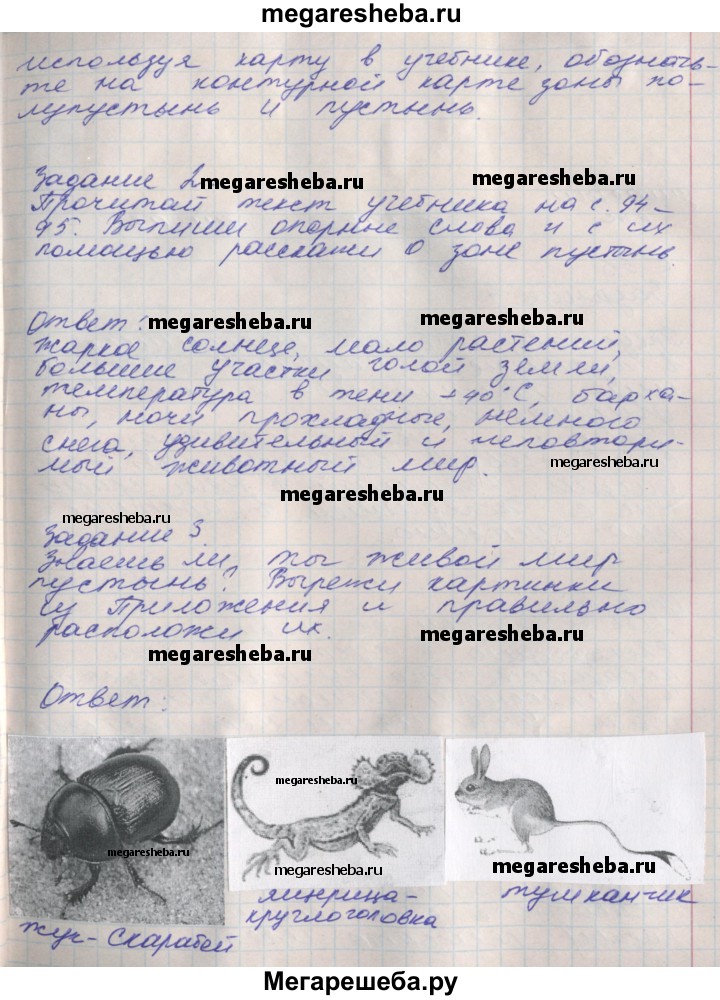 megaresheba.ru
используя карту в учебнике, обозначь-
те на контурной карте зоны по-
лупустынь и пустынь.
Задание 2. megaresheba.ru megaresheba.ru
Прочитай текст учебника на с. 94-
95. Выпиши опорные слова и с их
помощью расскажи о зоне пустынь.
Ответ: megaresheba.ru megaresheba.ru
жаркое солнце, мало растений,
большие участки голой земли,
температура в тени +40°С, барха-
ны, ночи прохладные, немного
снега, удивительный и неповтори-
мый животный мир. megaresheba.ru
megaresheba.ru
megaresheba.ru
Задание 3.
Знаешь ли, ты живой мир
пустынь? Вырежи картинки
из Приложения и правильно
расположи их. megaresheba.ru
megaresheba.ru
Ответ:
megaresheba.ru
megaresheba.ru
megaresheba.ru
megaresheba.ru
жук-Скарабей
ящерица-
круглоголовка
тушканчик
Мегарешеба.ру